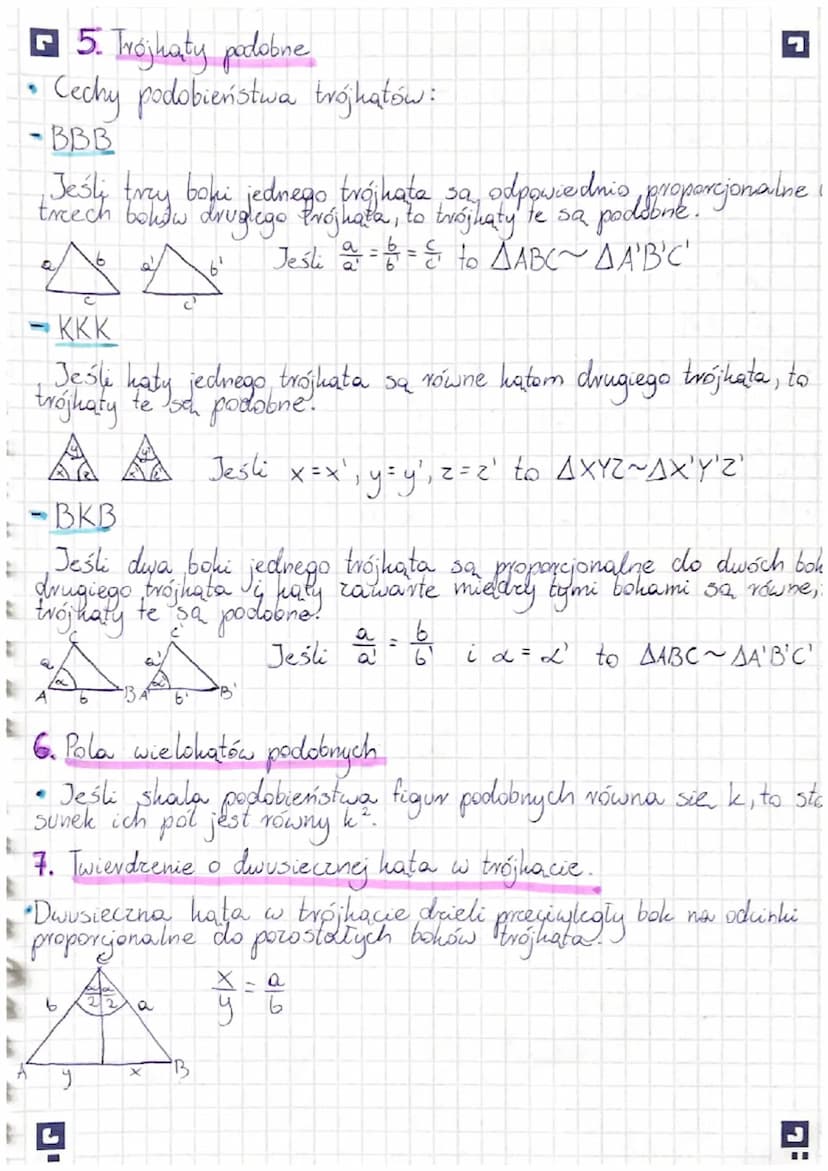 5. Trójkąty podobne
• Cechy podobieństwa trójkątów:
- BBB
Jeśli trzy boki jednego trójkąta są odpowiednio proporcjonalne
trzech boków drugiego trójkąta, to trójkąty te są podobne.
a b c a' b' c' Jeśli a/a' = b/b' = c/c' to ΔABC~ΔA'B'C'
- KKK
Jeśli kąty jednego trójkąta są równe kątom drugiego trójkąta, to
trójkąty te są podobne.
x y z x' y' z' Jeśli x=x', y=y', z=z' to ΔXYZ~ΔX'Y'Z'
- BKB
Jeśli dwa boki jednego trójkąta są proporcjonalne do dwóch bok
drugiego trójkąta i kąty zawarte między tymi bokami są równe,
trójkąty te są podobne.
C C'
a α A b B a' α' A' b' B' Jeśli a/a' = b/b' i α=α' to ΔABC~ΔA'B'C'
6. Pola wielokątów podobnych
• Jeśli skala podobieństwa figur podobnych równa się k, to sto
sunek ich pól jest równy k².
7. Twierdzenie o dwusiecznej kąta w trójkącie.
• Dwusieczna kąta w trójkącie dzieli przeciwległy bok na odcinki
proporcjonalne do pozostałych boków trójkąta.
C
b α/2 α/2 a x/y = a/b
A y x B